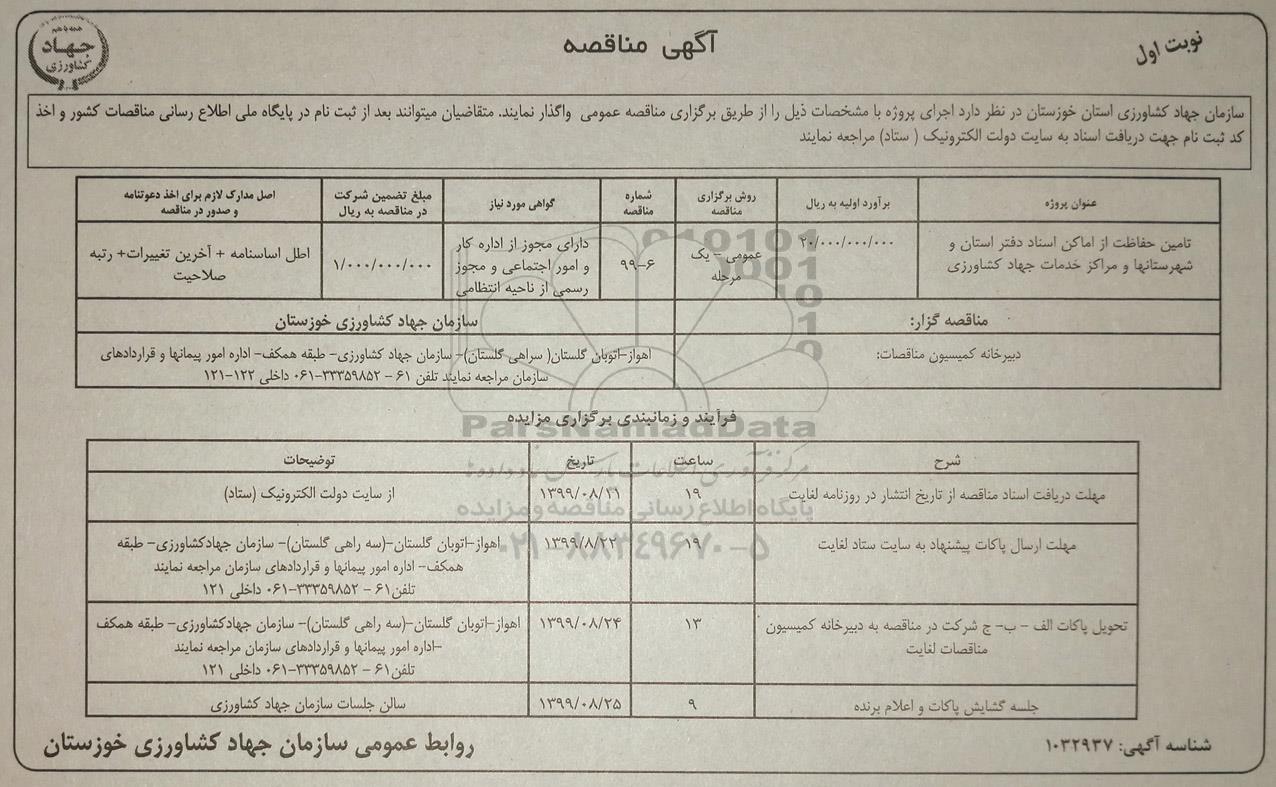 نوبت اول
آگهی مناقصه
همه با هم
جهاد
کشاورزی
سازمان جهاد کشاورزی استان خوزستان در نظر دارد اجرای پروژه با مشخصات ذیل را از طریق برگزاری مناقصه عمومی واگذار نمایند. متقاضیان میتوانند بعد از ثبت نام در پایگاه ملی اطلاع رسانی مناقصات کشور و اخذ
کد ثبت نام جهت دریافت اسناد به سایت دولت الکترونیک ( ستاد) مراجعه نمایند
عنوان پروژه
برآورد اولیه به ریال
روش برگزاری
مناقصه
شماره
مناقصه
گواهی مورد نیاز
مبلغ تضمین شرکت
در مناقصه به ریال
اصل مدارک لازم برای اخذ دعوتنامه
و صدور در مناقصه
تامین حفاظت از اماکن اسناد دفتر استان و
شهرستانها و مراکز خدمات جهاد کشاورزی
۲۰/۰۰۰/۰۰۰/۰۰۰
عمومی – یک
مرحله
۹۹-۶
دارای مجوز از اداره کار
و امور اجتماعی و مجوز
رسمی از ناحیه انتظامی
۱/۰۰۰/۰۰۰/۰۰۰
اطل اساسنامه + آخرین تغییرات+ رتبه
صلاحیت
مناقصه گزار:
سازمان جهاد کشاورزی خوزستان
دبیرخانه کمیسیون مناقصات:
اهواز-اتوبان گلستان( سراهی گلستان)- سازمان جهاد کشاورزی- طبقه همکف- اداره امور پیمانها و قراردادهای
سازمان مراجعه نمایند تلفن ۶۱ – ۳۳۳۵۹۸۵۲-۰۶۱ داخلی ۱۲۲-۱۲۱
فرآیند و زمانبندی برگزاری مزایده
ParsNamadData
پایگاه اطلاع رسانی مناقصه و مزایده
۰۲۱-۸۸۳۴۹۶۷۰-۵
شرح
ساعت
تاریخ
توضیحات
مهلت دریافت اسناد مناقصه از تاریخ انتشار در روزنامه لغایت
۱۹
۱۳۹۹/۰۸/۱۱
از سایت دولت الکترونیک (ستاد)
مهلت ارسال پاکات پیشنهاد به سایت ستاد لغایت
۱۹
۱۳۹۹/۸/۲۲
اهواز-اتوبان گلستان-(سه راهی گلستان)- سازمان جهادکشاورزی- طبقه
همکف- اداره امور پیمانها و قراردادهای سازمان مراجعه نمایند
تلفن۶۱ – ۳۳۳۵۹۸۵۲-۰۶۱ داخلی ۱۲۱
تحویل پاکات الف – ب- ج شرکت در مناقصه به دبیرخانه کمیسیون
مناقصات لغایت
۱۳
۱۳۹۹/۰۸/۲۴
اهواز-اتوبان گلستان-(سه راهی گلستان)- سازمان جهادکشاورزی- طبقه همکف
-اداره امور پیمانها و قراردادهای سازمان مراجعه نمایند
تلفن۶۱ – ۳۳۳۵۹۸۵۲-۰۶۱ داخلی ۱۲۱
جلسه گشایش پاکات و اعلام برنده
۹
۱۳۹۹/۰۸/۲۵
سالن جلسات سازمان جهاد کشاورزی
شناسه آگهی: ۱۰۳۲۹۳۷
روابط عمومی سازمان جهاد کشاورزی خوزستان